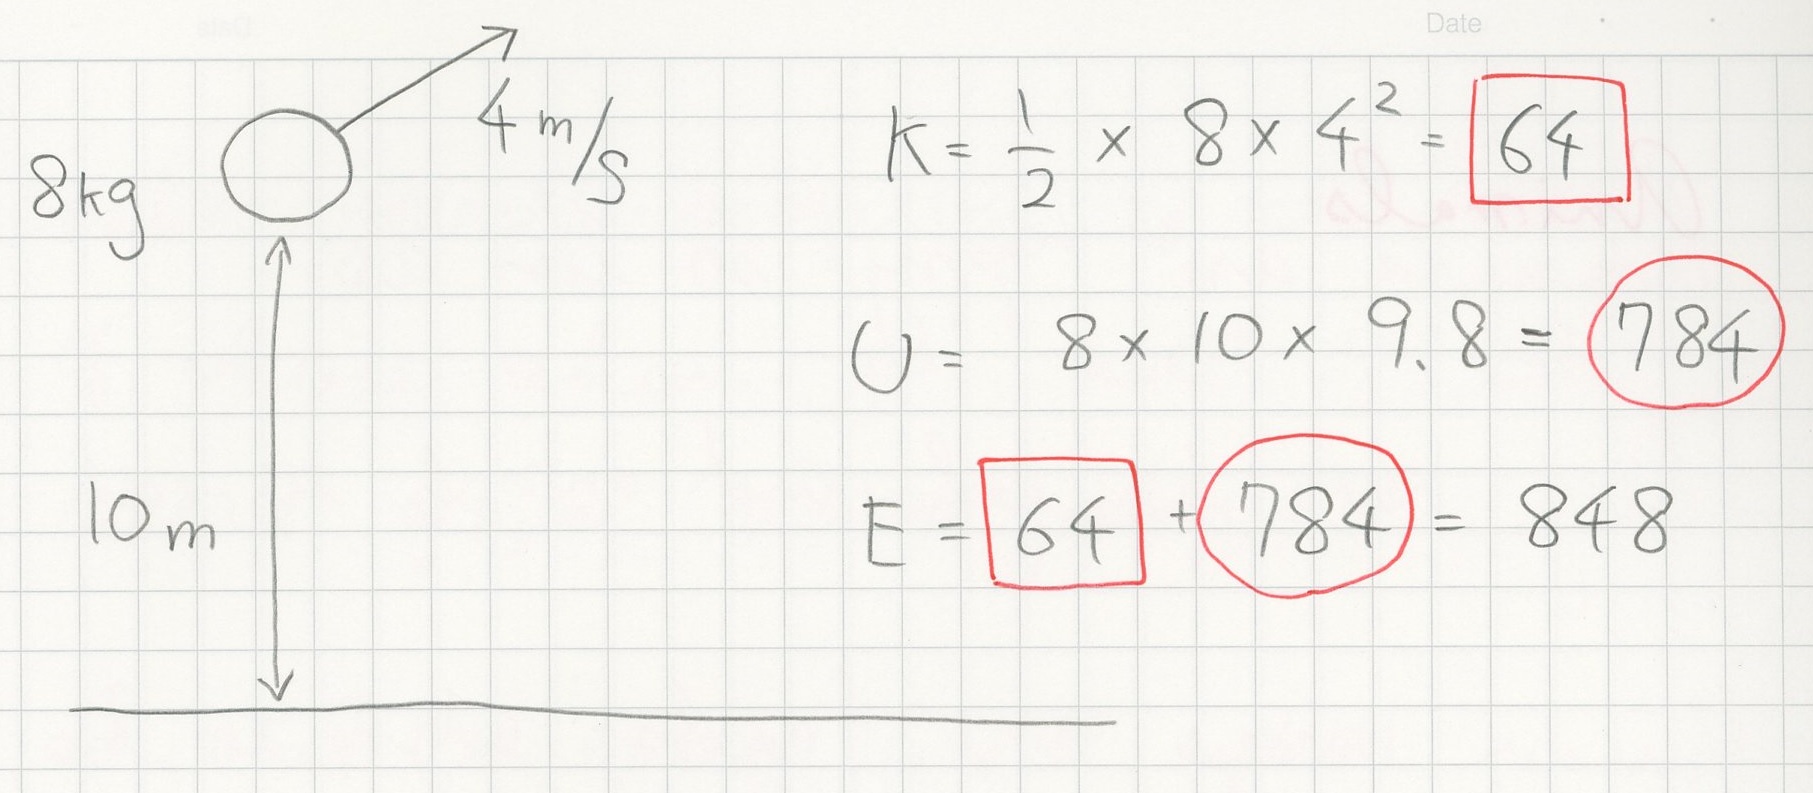 Date
4 m/s
8kg
10 m
K = 1/2 × 8 × 4² = 64
U = 8 × 10 × 9.8 = 784
E = 64 + 784 = 848